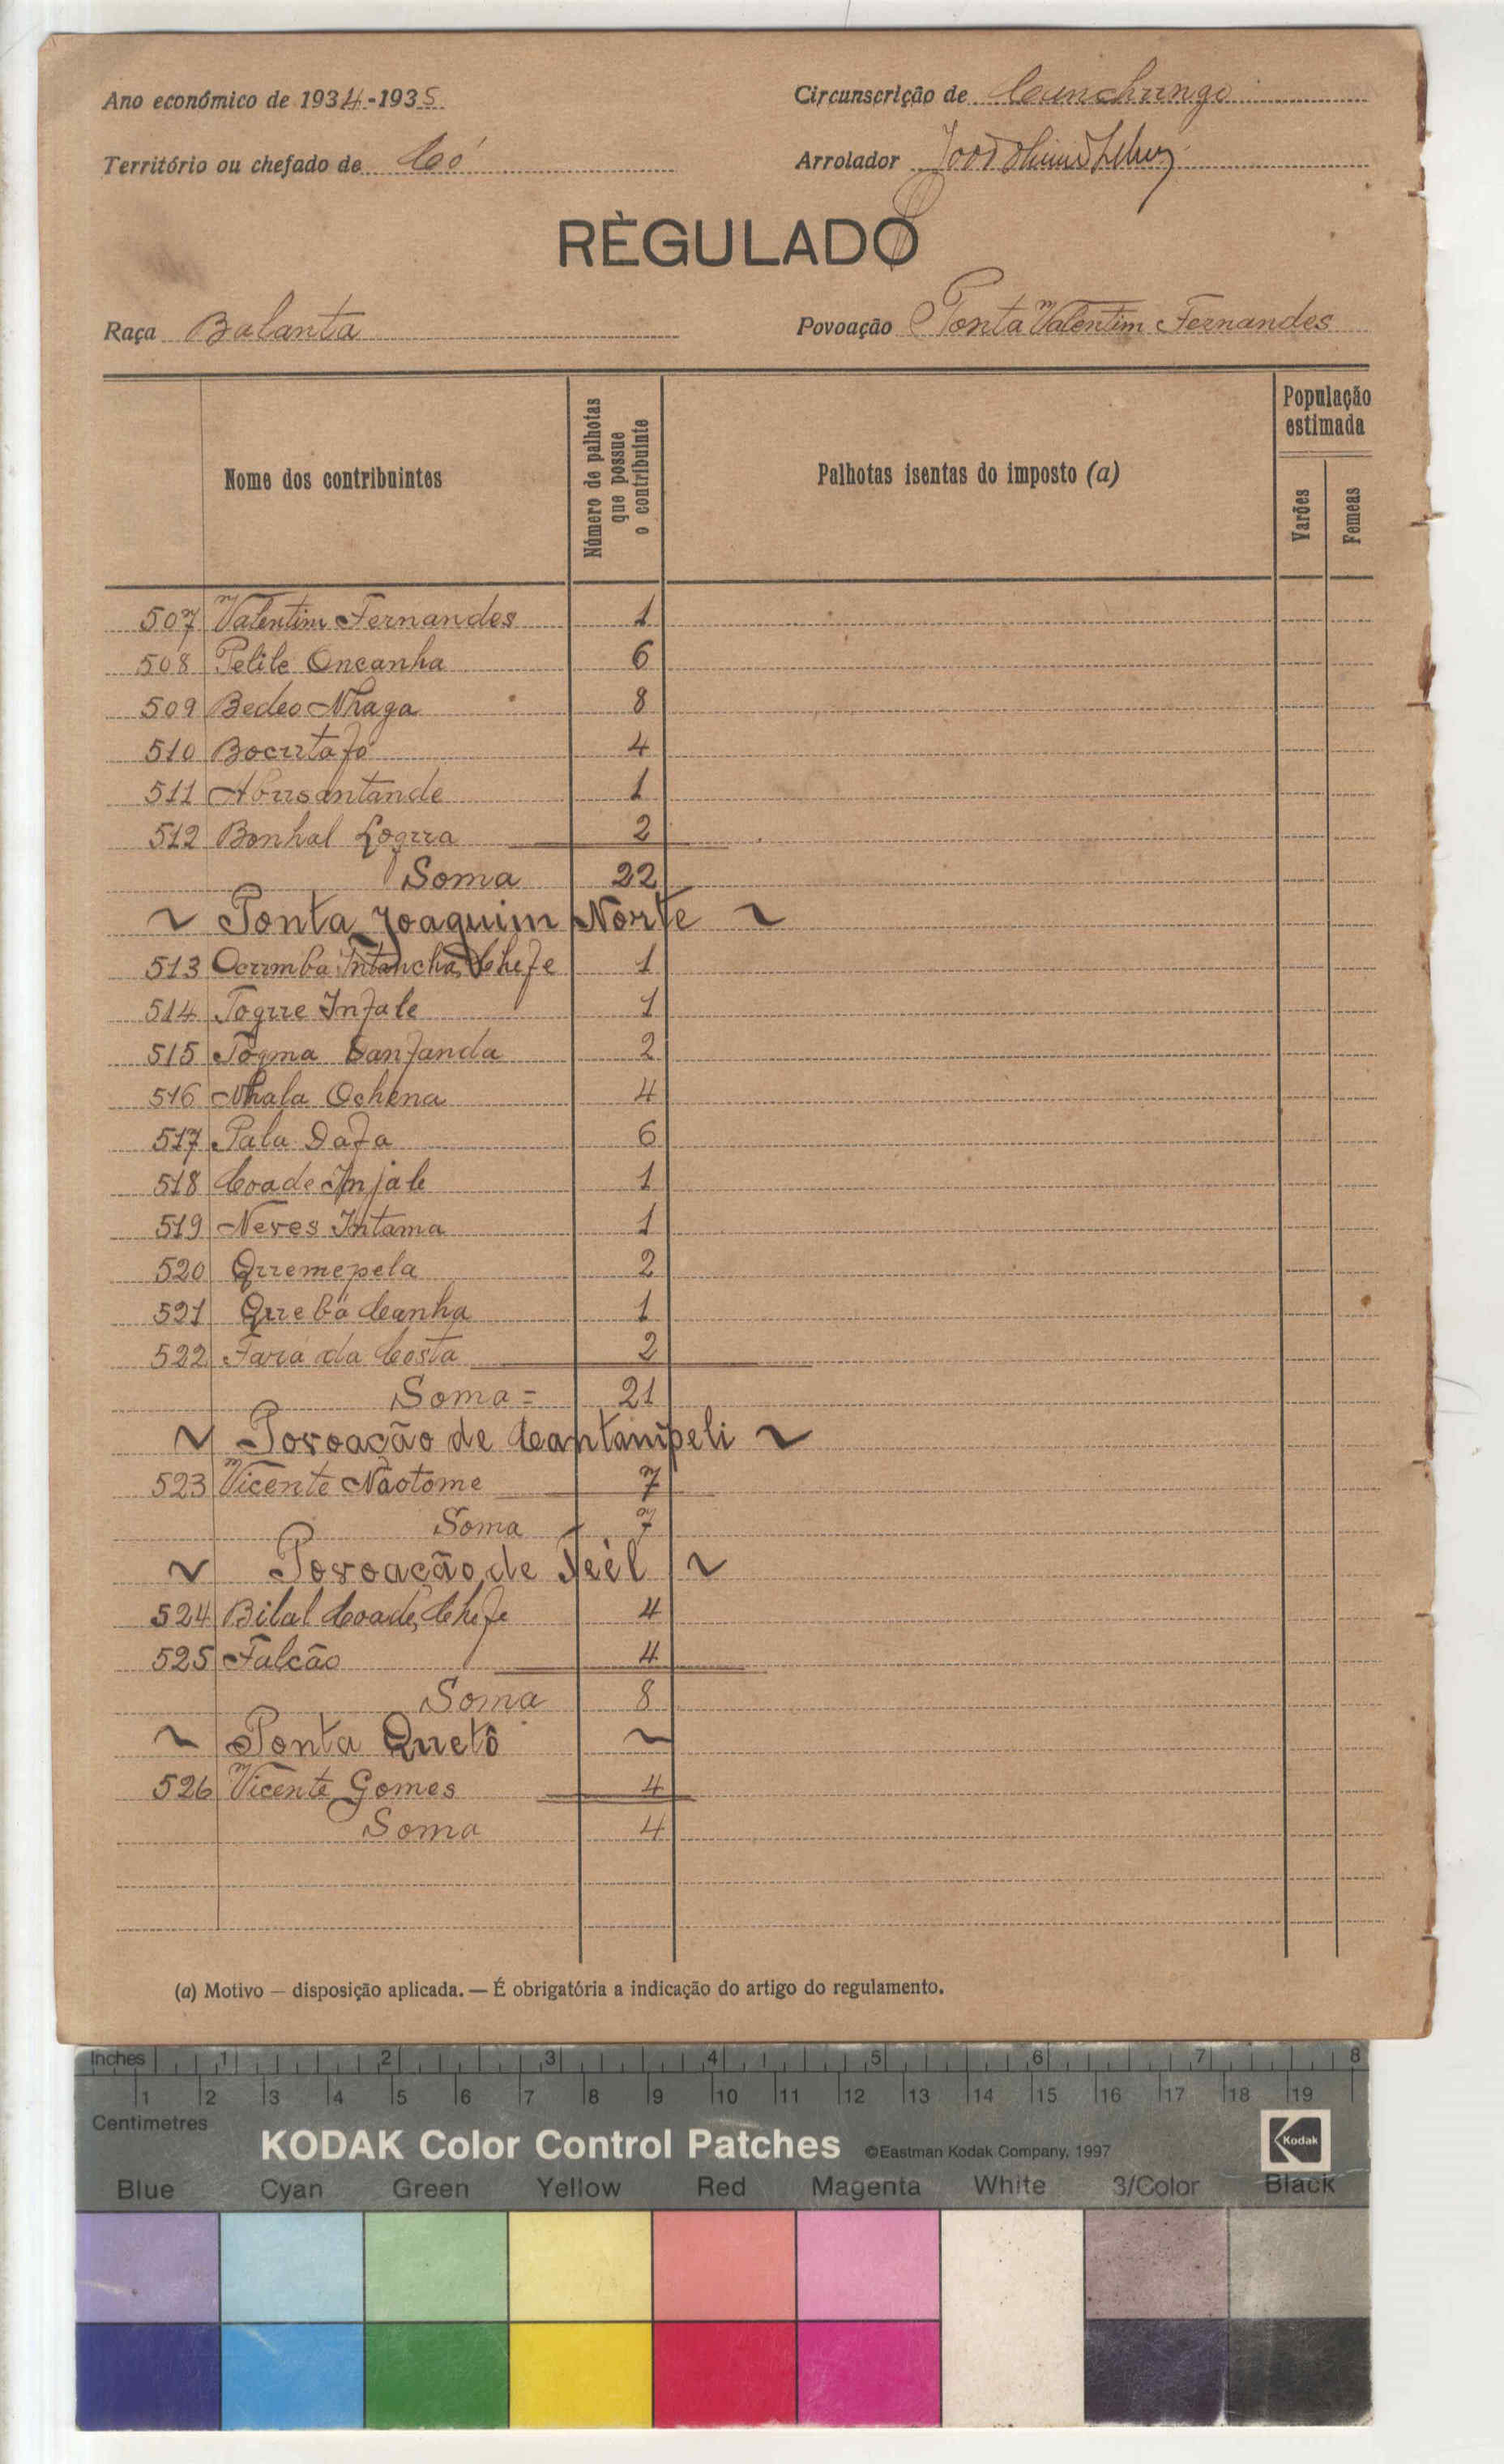 Ano económico de 1934-1935
Circunscrição de Canchungo
Território ou chefado de Có
Arrolador
RÈGULADO
Raça Balanta
Povoação Ponta Valentim Fernandes
Nome dos contribuintes
Número de palhotas que possue o contribuinte
Palhotas isentas do imposto (a)
População estimada
Varões
Femeas
507 Valentim Fernandes 1
508 Pelile Oncanha 6
509 Bedeo Nhaga 8
510 Bocuta fó 4
511 Abusantande 1
512 Bonhal Logua 2
Soma 22
~ Ponta Joaquim Norte ~
513 Ocumba Intancha, Chefe 1
514 Togue Infale 1
515 Togma Canfanda 2
516 Nhala Ochena 4
517 Pala Dafa 6
518 Coade Injale 1
519 Neves Intama 1
520 Quemepela 2
521 Quebá Canha 1
522 Fara da Costa 2
Soma = 21
~ Povoação de Cantampeli ~
523 Vicente Nãotome 7
Soma 7
~ Povoação de Teèl ~
524 Bilal Coadé, Chefe 4
525 Falcão 4
Soma 8
~ Ponta Quetô ~
526 Vicente Gomes 4
Soma 4
(a) Motivo — disposição aplicada. — É obrigatória a indicação do artigo do regulamento.
Inches 1 2 3 4 5 6 7 8
1 2 3 4 5 6 7 8 9 10 11 12 13 14 15 16 17 18 19
Centimetres
KODAK Color Control Patches ©Eastman Kodak Company, 1997 Kodak
Blue Cyan Green Yellow Red Magenta White 3/Color Black